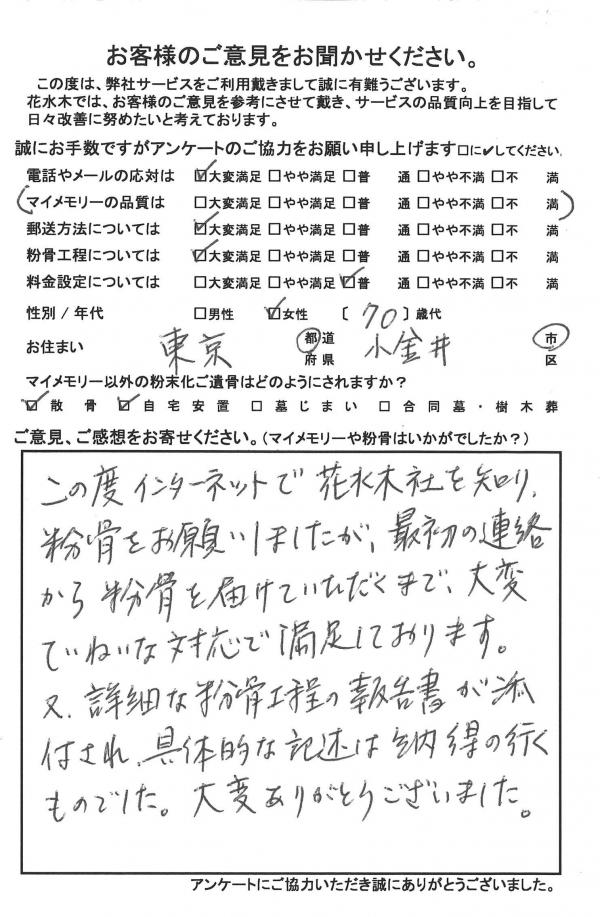 お客様のご意見をお聞かせください。
この度は、弊社サービスをご利用戴きまして誠に有難うございます。
花水木では、お客様のご意見を参考にさせて戴き、サービスの品質向上を目指して
日々改善に努めたいと考えております。
誠にお手数ですがアンケートのご協力をお願い申し上げます□に✔してください。
電話やメールの応対は ☑大変満足 □やや満足 □普 通 □やや不満 □不 満
(マイメモリーの品質は □大変満足 □やや満足 □普 通 □やや不満 □不 満)
郵送方法については ☑大変満足 □やや満足 □普 通 □やや不満 □不 満
粉骨工程については ☑大変満足 □やや満足 □普 通 □やや不満 □不 満
料金設定については □大変満足 □やや満足 ☑普 通 □やや不満 □不 満
性別 / 年代 □男性 ☑女性 〔 70 〕歳代
お住まい 東京 都道府県 小金井 市区
マイメモリー以外の粉末化ご遺骨はどのようにされますか?
☑散骨 ☑自宅安置 □墓じまい □合同墓・樹木葬
ご意見、ご感想をお寄せください。(マイメモリーや粉骨はいかがでしたか?)
この度インターネットで花水木社を知り、
粉骨をお願いしましたが、最初の連絡
から粉骨を届けていただくまで、大変
ていねいな対応で満足しております。
又、詳細な粉骨工程の報告書が添
付され、具体的な記述は納得の行く
ものでした。大変ありがとうございました。
アンケートにご協力いただき誠にありがとうございました。